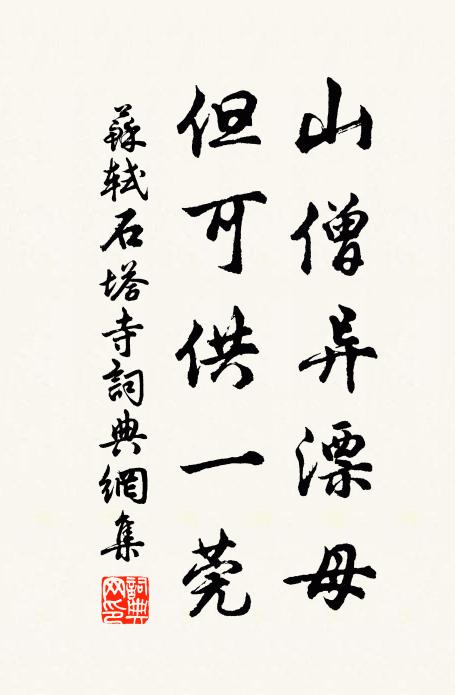 山僧异漂母
但可供一莞
蘇軾石塔寺詞典網集
詞典网印